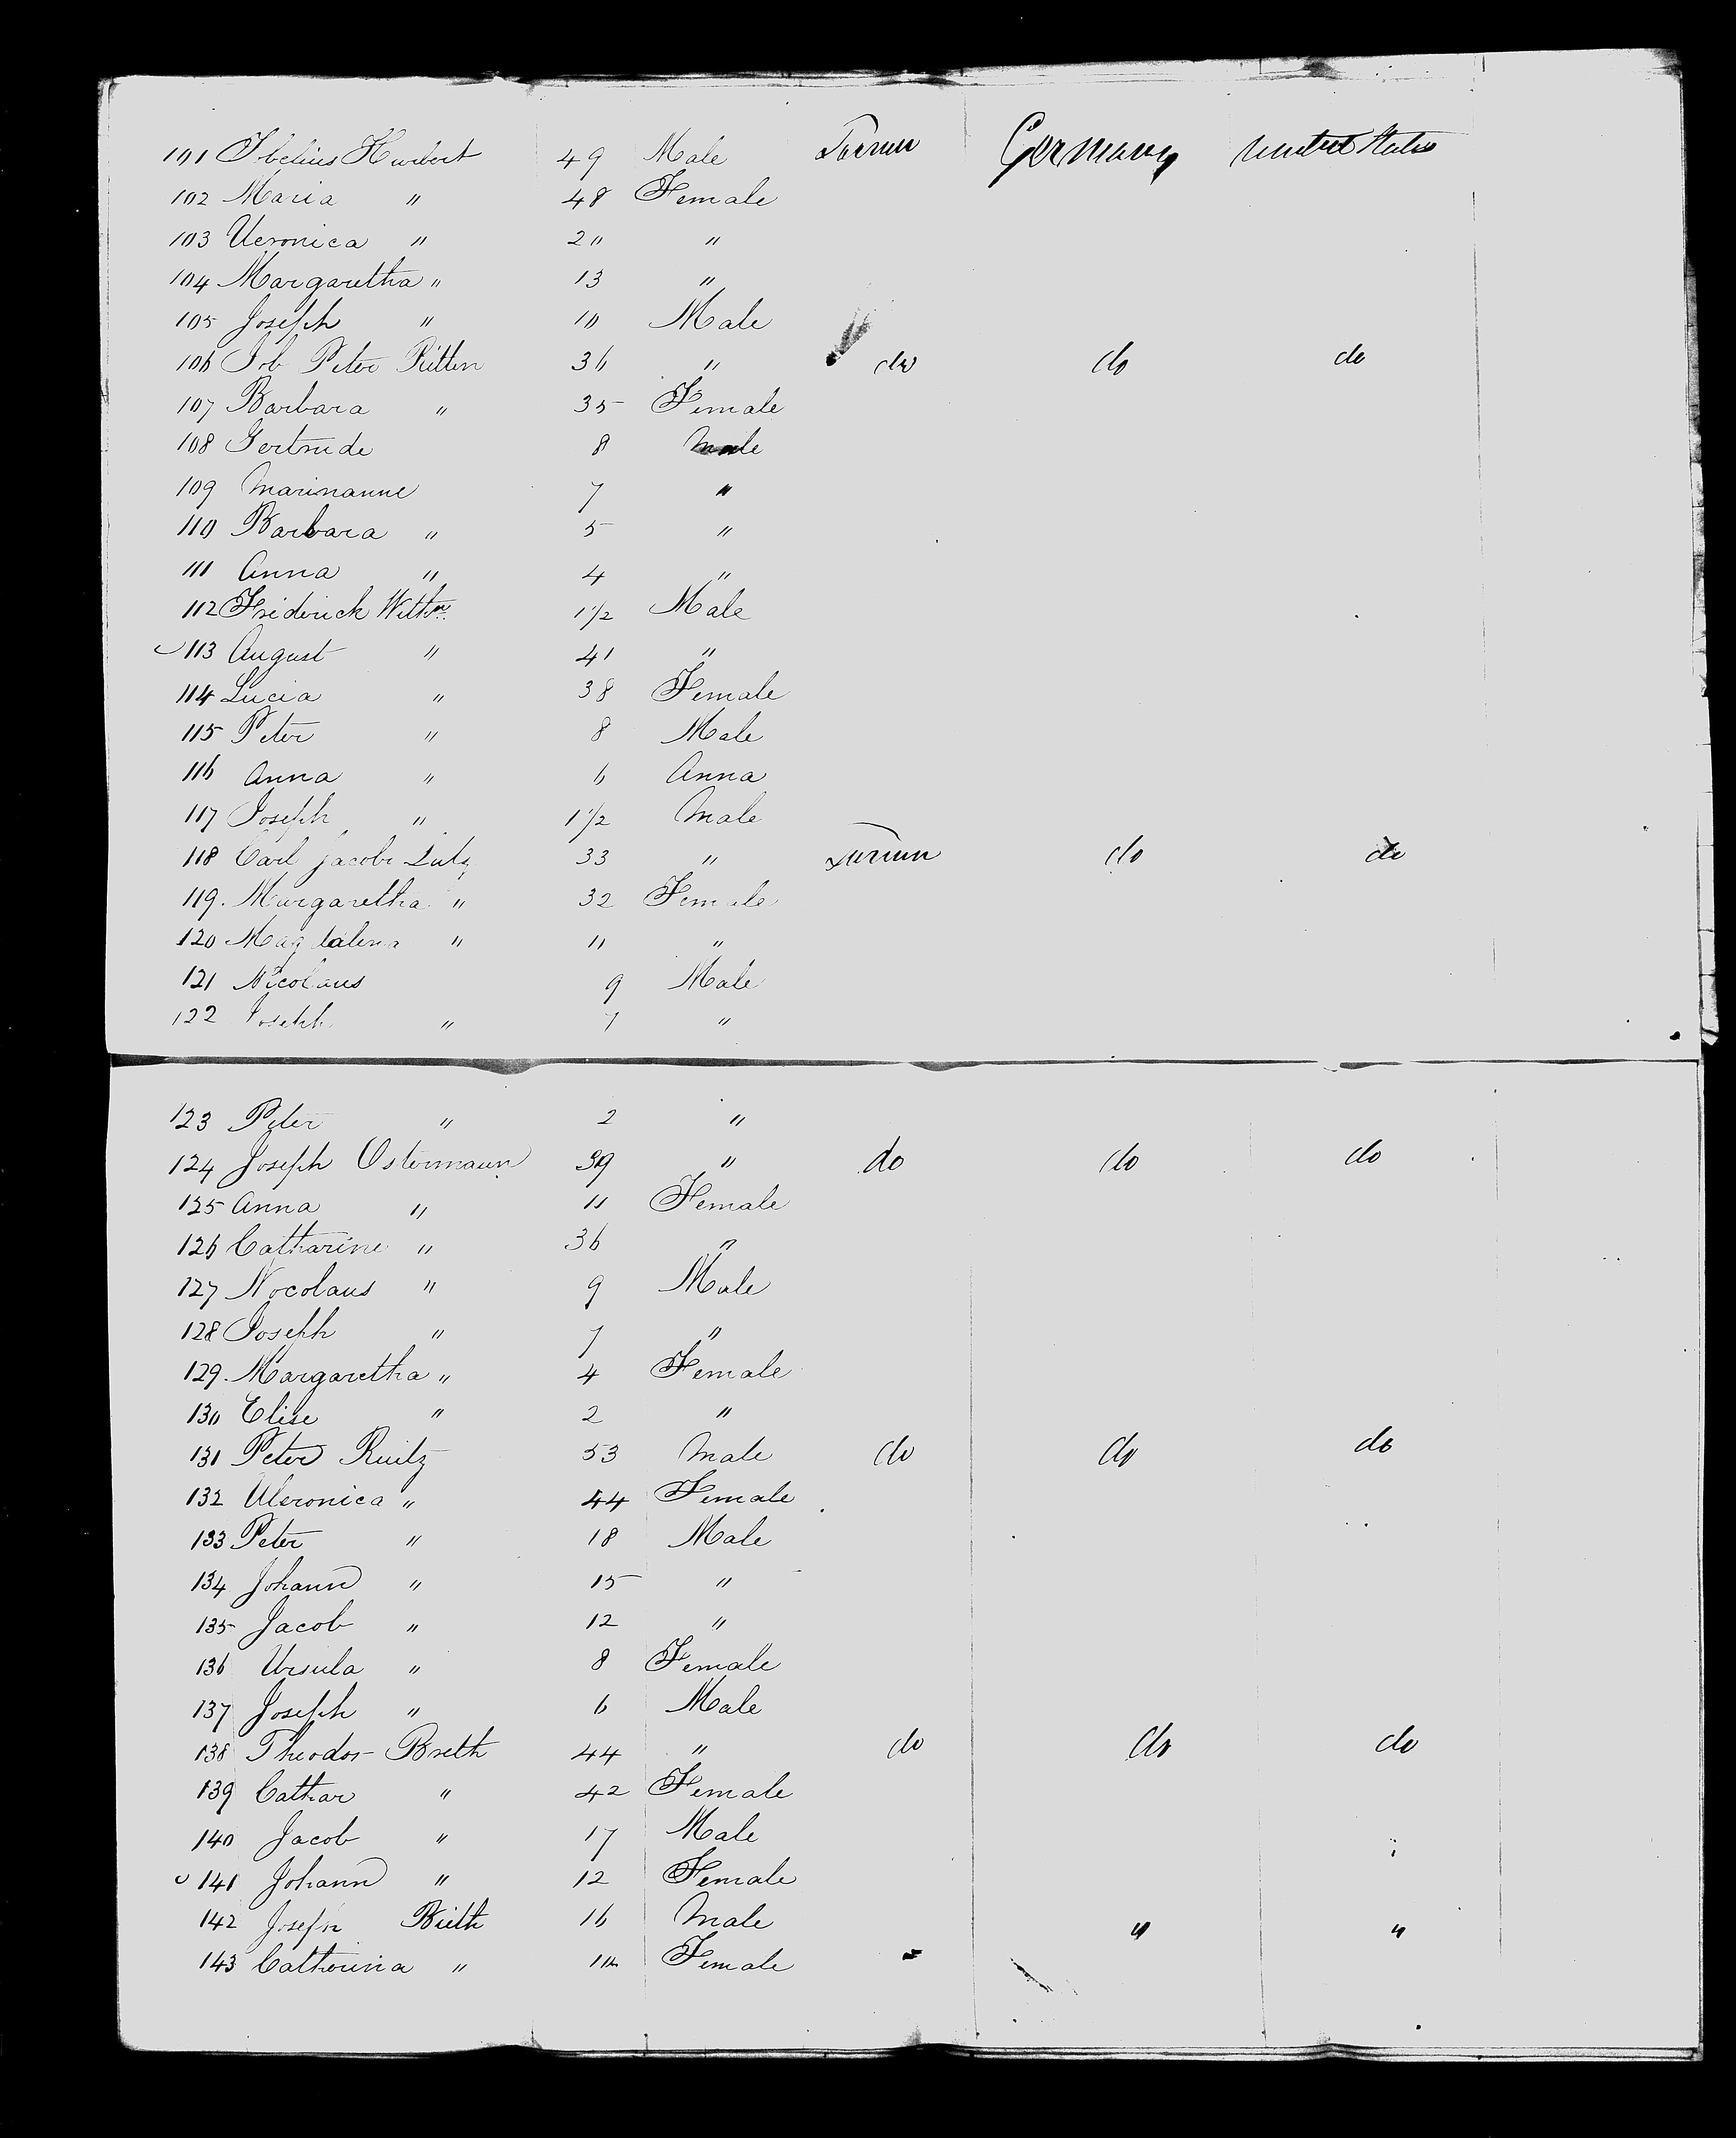 101 Ibelius Huebert 49 Male Farmer Germany United States
102 Maria " 48 Female
103 Veronica " 20 "
104 Margaretha " 13 "
105 Joseph " 10 Male
106 Joh Peter Ritten 36 " do do do
107 Barbara " 35 Female
108 Gertrude 8 Male
109 Marinanne 7 "
110 Barbara " 5 "
111 Anna " 4 "
112 Friderick Withr. 1 1/2 Male
113 August " 41 "
114 Lucia " 38 Female
115 Peter " 8 Male
116 Anna " 6 Anna
117 Joseph " 1 1/2 Male
118 Carl Jacob Lutz 33 " Farmer do do
119. Margaretha " 32 Female
120 Magdalena " 11 "
121 Nicolaus 9 Male
122 Joseph " 7 "
123 Peter " 2 "
124 Joseph Ostermann 39 " do do do
125 Anna " 11 Female
126 Catharine " 36 "
127 Nocolaus " 9 Male
128 Joseph " 7 "
129. Margaretha " 4 Female
130 Elise " 2 "
131 Peter Ruitz 53 Male do do do
132 Veronica " 44 Female
133 Peter " 18 Male
134 Johann " 15 "
135 Jacob " 12 "
136 Ursula " 8 Female
137 Joseph " 6 Male
138 Theodor Breth 44 " do do do
139 Cathar " 42 Female
140 Jacob " 17 Male
141 Johann " 12 Female
142 Joseph Bieth 16 Male " "
143 Catherina " Female